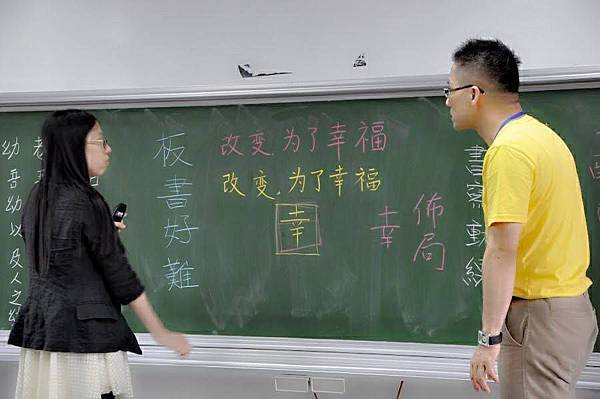 幼吾幼以及人之幼
老
板書好難
改变,为了幸福
改变,为了幸福
幸
幸
佈局
書寫動